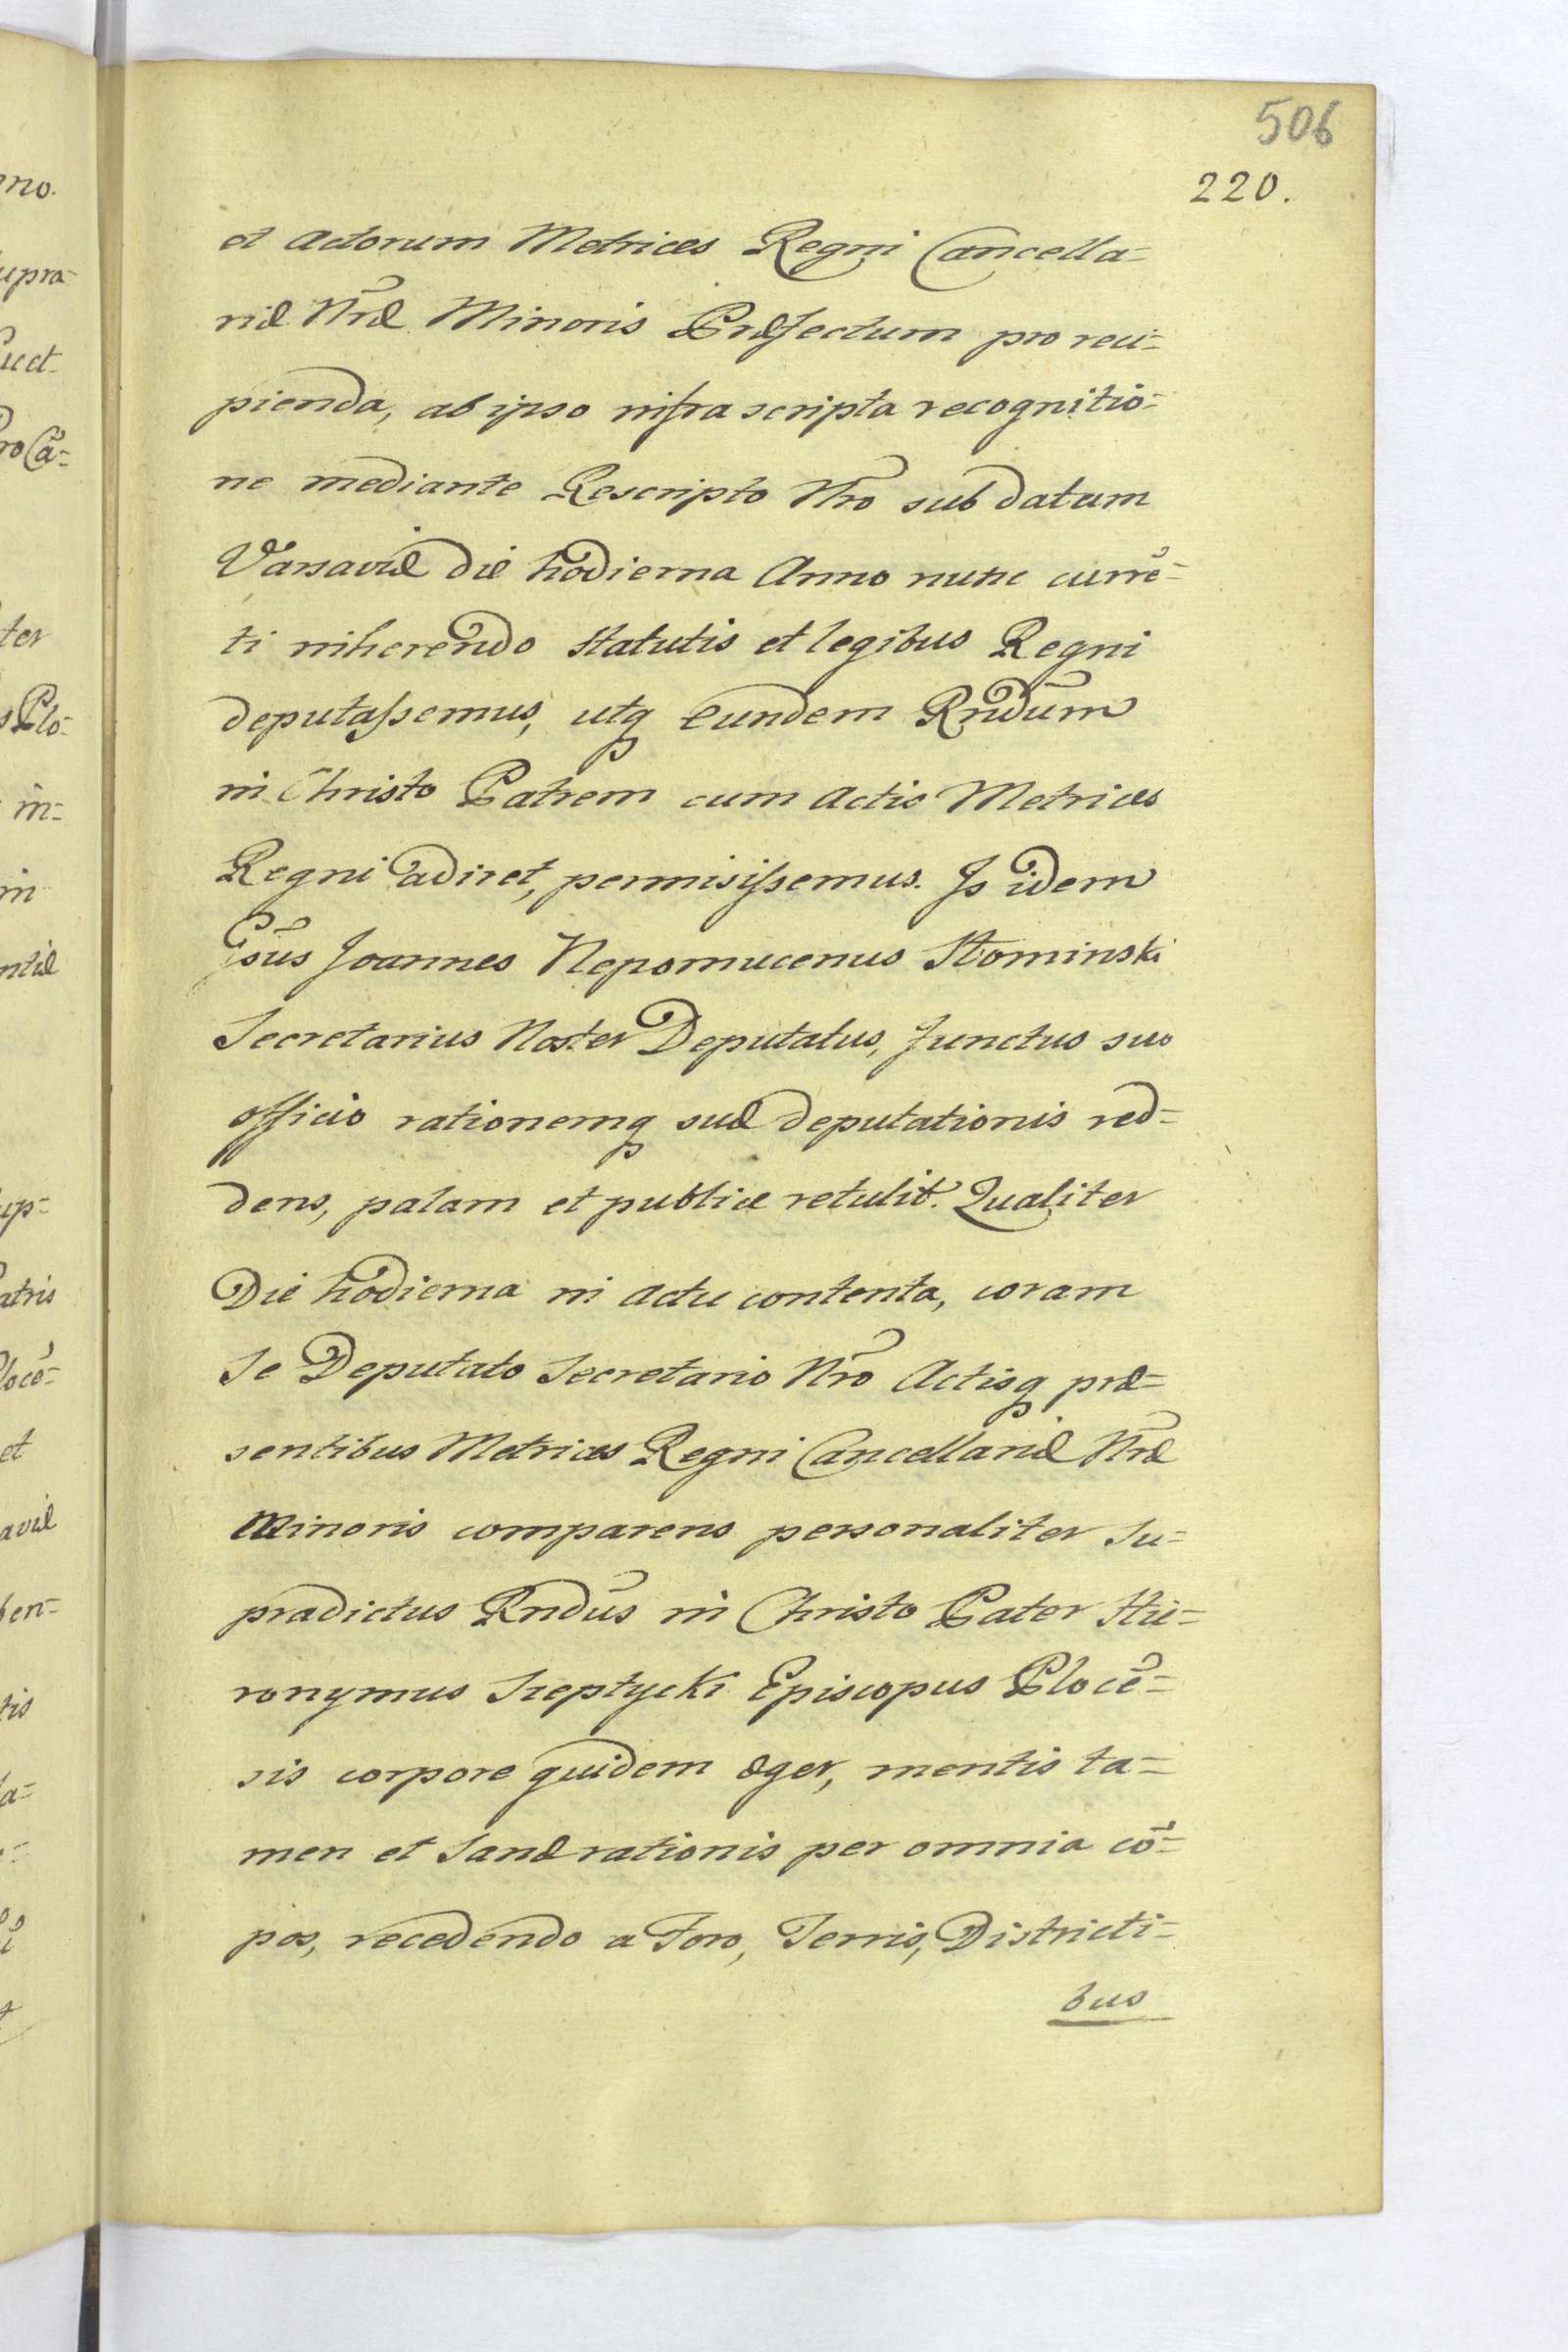 506
220.
et Actorum Metrices Regni Cancella=
riæ Nræ Minoris Præfectum pro reci=
pienda, ab ipso infra scripta recognitio=
ne mediante Rescripto Nro sub datum
Varsaviæ die hodierna Anno nunc currē=
ti inherendo Statutis et legibus Regni
deputassemus, utq eundem Rndum
in Christo Patrem cum Actis Metrices
Regni adiret, permisissemus. Is idem
Gsus Joannes Nepomucenus Słominski
Secretarius Noster Deputatus, functus suo
officio rationemq suæ deputationis red=
dens, palam et publice retulit. Qualiter
Die hodierna in Actu contenta, coram
Se Deputato Secretario Nro Actisq præ=
sentibus Metrices Regni Cancellariæ Nræ
Minoris comparens personaliter Su=
pradictus Rndus in Christo Pater Hie=
ronymus Szeptycki Episcopus Plocē=
sis corpore quidem æger, mentis ta=
men et Sanæ rationis per omnia cō=
pos, recedendo a Foro, Terris, Districti=
bus
no.
upra=
ro Cā=
ter
Plo=
in=
in
ntiæ
up=
atris
locē=
et
aviæ
ben=
tis
a=